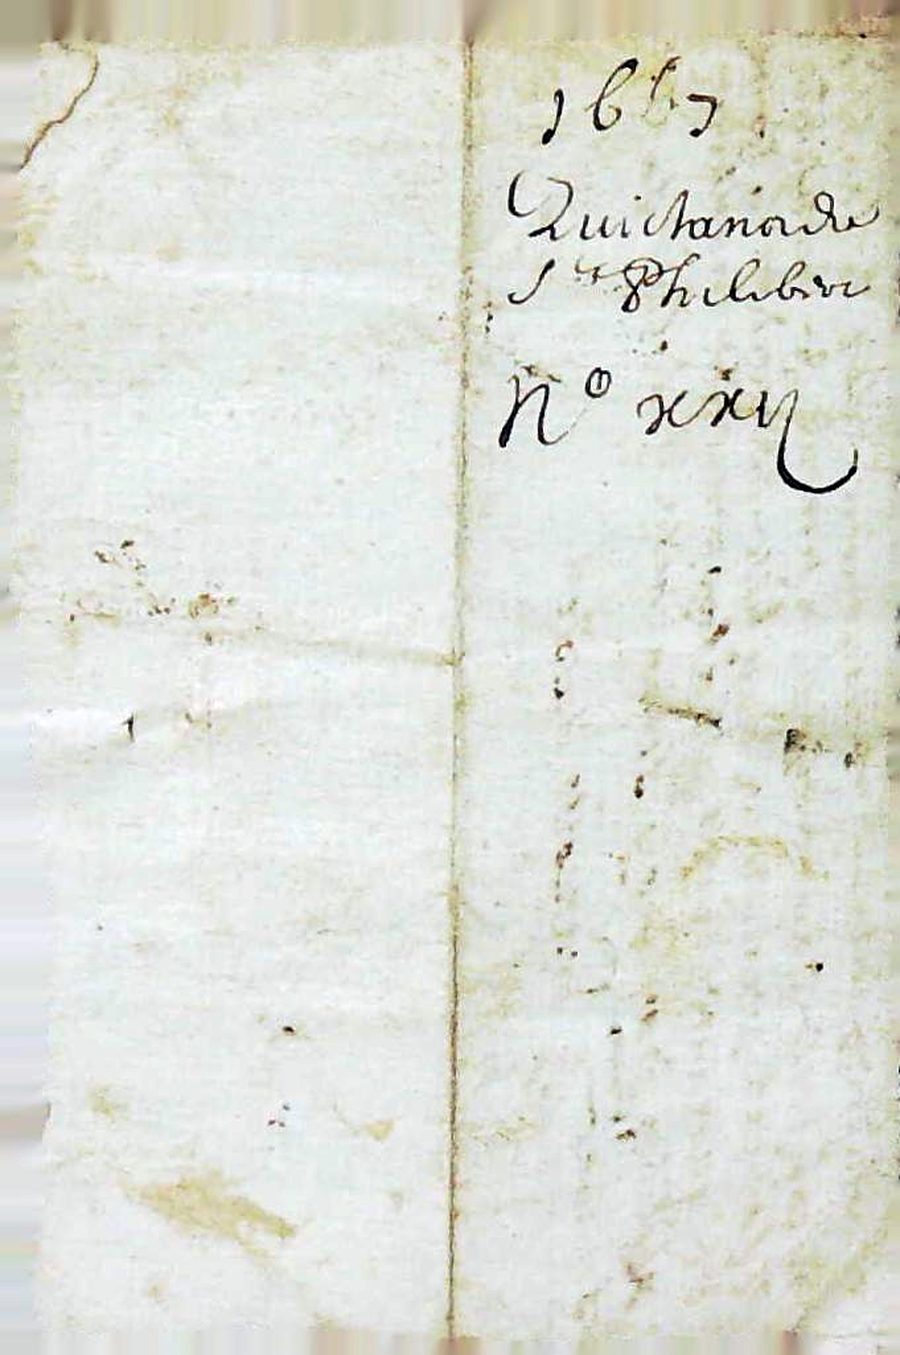 1667
Quictance de
Ste Philibere
No xxij